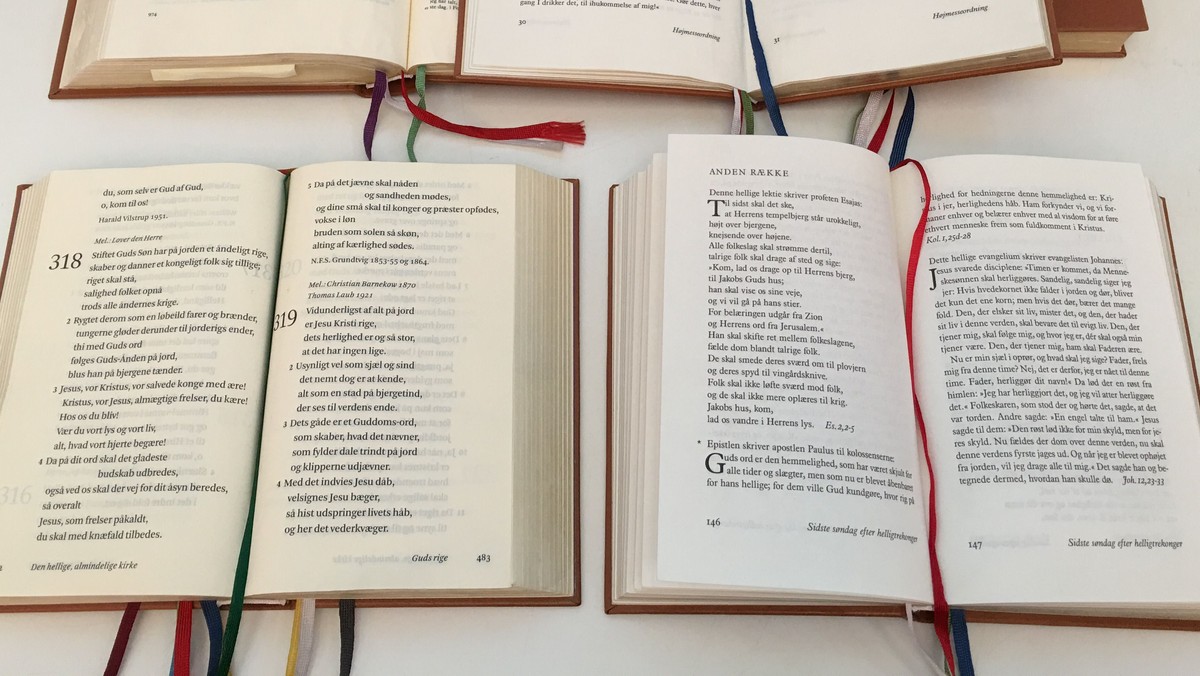 974
gang I drikker det, til ihukommelse af mig!«
30
Højmesseordning
31
Højmesseordning
du, som selv er Gud af Gud,
o, kom til os!
Harald Vilstrup 1951.
Mel.: Lover den Herre
318 Stiftet Guds Søn har på jorden et åndeligt rige,
skaber og danner et kongeligt folk sig tillige;
riget skal stå,
salighed folket opnå
trods alle åndernes krige.
2 Rygtet derom som en løbeild farer og brænder,
tungerne gløder derunder til jorderigs ender,
thi med Guds ord
følges Guds-Ånden på jord,
blus han på bjergene tænder.
3 Jesus, vor Kristus, vor salvede konge med ære!
Kristus, vor Jesus, almægtige frelser, du kære!
Hos os du bliv!
Vær du vort lys og vort liv,
alt, hvad vort hjerte begære!
4 Da på dit ord skal det gladeste
budskab udbredes,
også ved os skal der vej for dit åsyn beredes,
så overalt
Jesus, som frelser påkaldt,
du skal med knæfald tilbedes.
Den hellige, almindelige kirke
5 Da på det jævne skal nåden
og sandheden mødes,
og dine små skal til konger og præster opfødes,
vokse i løn
bruden som solen så skøn,
alting af kærlighed sødes.
N.F.S. Grundtvig 1853-55 og 1864.
Mel.: Christian Barnekow 1870
Thomas Laub 1921
319 Vidunderligst af alt på jord
er Jesu Kristi rige,
dets herlighed er og så stor,
at det har ingen lige.
2 Usynligt vel som sjæl og sind
det nemt dog er at kende,
alt som en stad på bjergetind,
der ses til verdens ende.
3 Dets gåde er et Guddoms-ord,
som skaber, hvad det nævner,
som fylder dale trindt på jord
og klipperne udjævner.
4 Med det indvies Jesu dåb,
velsignes Jesu bæger,
så hist udspringer livets håb,
og her det vederkvæger.
Guds rige 483
ANDEN RÆKKE
Denne hellige lektie skriver profeten Esajas:
Til sidst skal det ske,
at Herrens tempelbjerg står urokkeligt,
højt over bjergene,
knejsende over højene.
Alle folkeslag skal strømme dertil,
talrige folk skal drage af sted og sige:
»Kom, lad os drage op til Herrens bjerg,
til Jakobs Guds hus;
han skal vise os sine veje,
og vi vil gå på hans stier.
For belæringen udgår fra Zion
og Herrens ord fra Jerusalem.«
Han skal skifte ret mellem folkeslagene,
fælde dom blandt talrige folk.
De skal smede deres sværd om til plovjern
og deres spyd til vingårdsknive.
Folk skal ikke løfte sværd mod folk,
og de skal ikke mere oplæres til krig.
Jakobs hus, kom,
lad os vandre i Herrens lys. Es. 2,2-5
* Epistlen skriver apostlen Paulus til kolossenserne:
Guds ord er den hemmelighed, som har været skjult for
alle tider og slægter, men som nu er blevet åbenbaret
for hans hellige; for dem ville Gud kundgøre, hvor rig på
146 Sidste søndag efter helligtrekonger
herlighed for hedningerne denne hemmelighed er: Kri-
stus i jer, herlighedens håb. Ham forkynder vi, og vi for-
maner enhver og belærer enhver med al visdom for at føre
ethvert menneske frem som fuldkomment i Kristus.
Kol. 1,25d-28
Dette hellige evangelium skriver evangelisten Johannes:
Jesus svarede disciplene: »Timen er kommet, da Menne-
skesønnen skal herliggøres. Sandelig, sandelig siger jeg
jer: Hvis hvedekornet ikke falder i jorden og dør, bliver
det kun det ene korn; men hvis det dør, bærer det mange
fold. Den, der elsker sit liv, mister det, og den, der hader
sit liv i denne verden, skal bevare det til evigt liv. Den, der
tjener mig, skal følge mig, og hvor jeg er, dér skal også min
tjener være. Den, der tjener mig, ham skal Faderen ære.
Nu er min sjæl i oprør, og hvad skal jeg sige? Fader, frels
mig fra denne time? Nej, det er derfor, jeg er nået til denne
time. Fader, herliggør dit navn!« Da lød der en røst fra
himlen: »Jeg har herliggjort det, og jeg vil atter herliggøre
det.« Folkeskaren, som stod der og hørte det, sagde, at det
var torden. Andre sagde: »En engel talte til ham.« Jesus
sagde til dem: »Den røst lød ikke for min skyld, men for je-
res skyld. Nu fældes der dom over denne verden, nu skal
denne verdens fyrste jages ud. Og når jeg er blevet ophøjet
fra jorden, vil jeg drage alle til mig.« Det sagde han og be-
tegnede dermed, hvordan han skulle dø. Joh. 12,23-33
147 Sidste søndag efter helligtrekonger